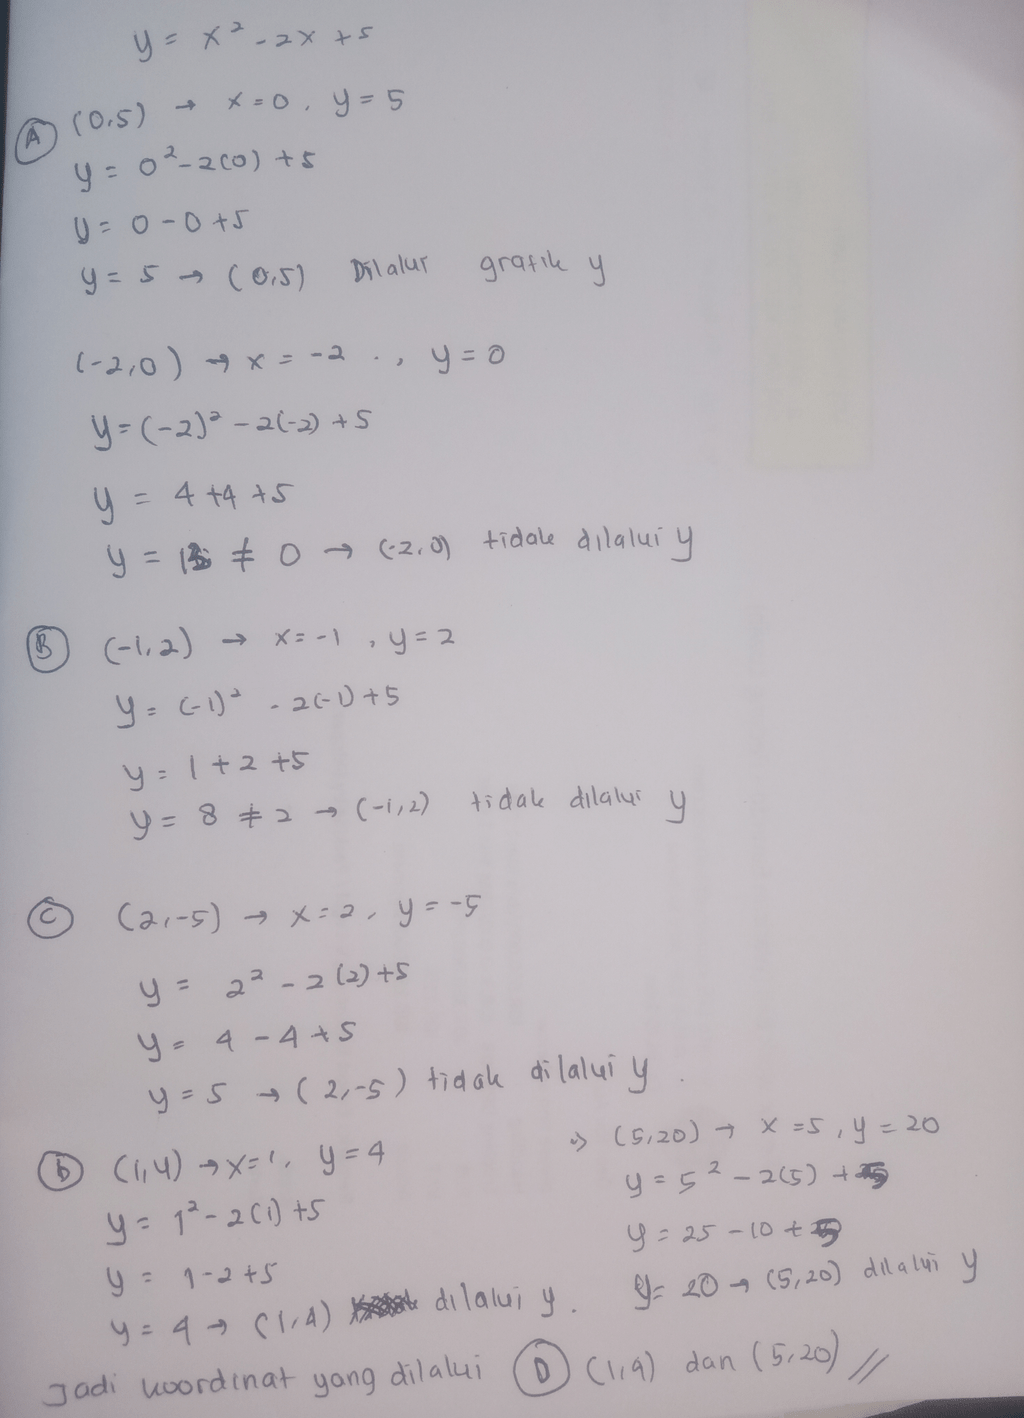 y = x² - 2x + 5
A (0,5) → x = 0, y = 5
y = 0² - 2(0) + 5
y = 0 - 0 + 5
y = 5 → (0,5) Dilalui grafik y
(-2,0) → x = -2 ., y = 0
y = (-2)² - 2(-2) + 5
y = 4 + 4 + 5
y = 13 ≠ 0 → (-2,0) tidak dilalui y
B (-1,2) → x = -1, y = 2
y = (-1)² - 2(-1) + 5
y = 1 + 2 + 5
y = 8 ≠ 2 → (-1,2) tidak dilalui y
C (2,-5) → x = 2, y = -5
y = 2² - 2(2) + 5
y = 4 - 4 + 5
y = 5 → (2,-5) tidak dilalui y.
D (1,4) → x = 1, y = 4
y = 1² - 2(1) + 5
y = 1 - 2 + 5
y = 4 → (1,4) dilalui y.
=> (5,20) → x = 5, y = 20
y = 5² - 2(5) + 5
y = 25 - 10 + 5
y = 20 → (5,20) dilalui y
Jadi koordinat yang dilalui D (1,4) dan (5,20) //